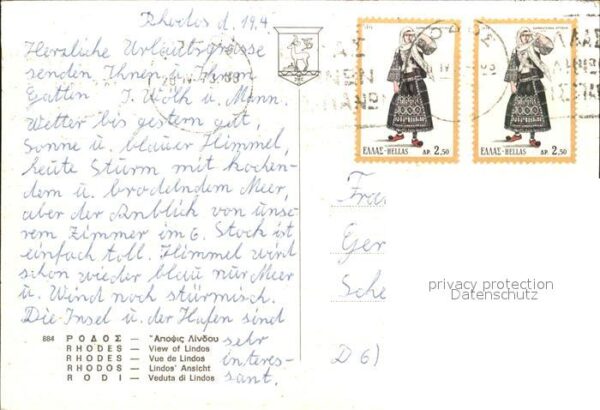 Rhodos d. 19.4.
Herzliche Urlaubsgrüsse
senden Ihnen u. Ihrem
Gatten J. Wölh u. Mann.
Wetter bis gestern gut,
Sonne u. blauer Himmel,
heute Sturm mit kochen-
dem u. brodelndem Meer,
aber der Anblick von unse-
rem Zimmer im 6. Stock ist
einfach toll. Himmel wird
schon wieder blau nur Meer
u. Wind noch stürmisch.
Die Insel u. der Hafen sind
sehr
interes-
sant.
884 ΡΟΔΟΣ — Ἄποψις Λίνδου
RHODES — View of Lindos
RHODES — Vue de Lindos
RHODOS — Lindos' Ansicht
RODI — Veduta di Lindos
ΕΛΛΑΣ-HELLAS ΔΡ. 2,50
ΕΛΛΑΣ-HELLAS ΔΡ. 2,50
Fra
Ger
Sche
D 6)
privacy protection
Datenschutz